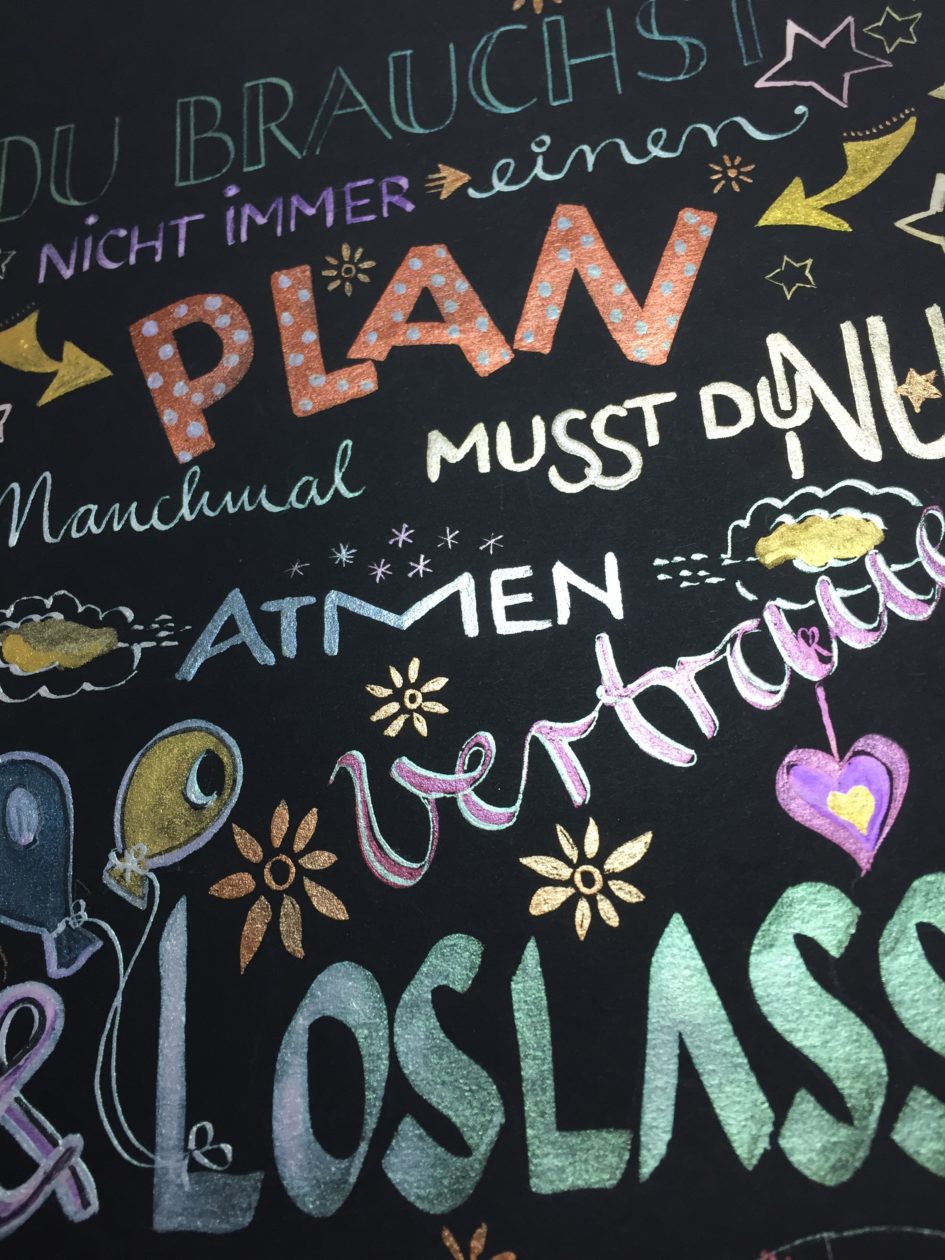 DU BRAUCHST
NiCHT iMMER einen
PLAN
Manchmal MUSST DU NU
ATMEN
vertraue
& LOSLASS